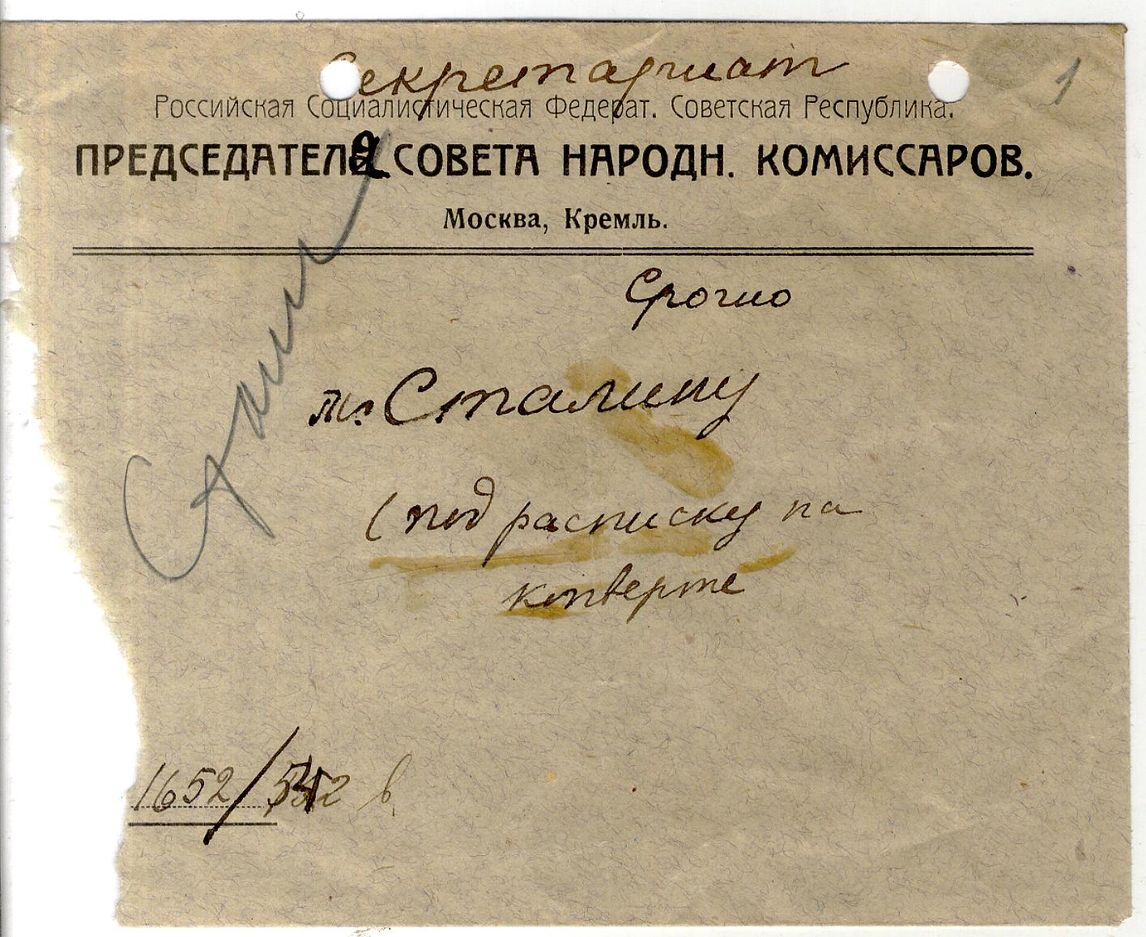 Секретариат
1
Российская Социалистическая Федерат. Советская Республика.
ПРЕДСЕДАТЕЛЯ СОВЕТА НАРОДН. КОМИССАРОВ.
Москва, Кремль.
Срочно
т. Сталину
(под расписку на
конверте
1652/